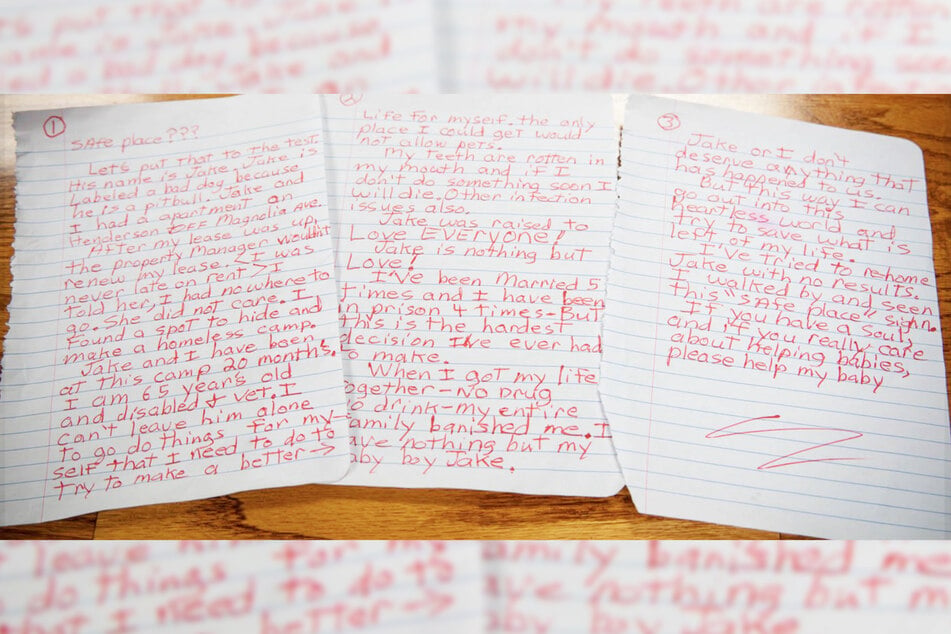 1
SAfe place???
Let's put that to the test.
His name is Jake. Jake is
Labeled a bad dog because
he is a pitbull. Jake and
I had a apartment on
Henderson OFF Magnolia Ave.
After my lease was up,
the property Manager wouldn't
renew my lease. <I was
never late on rent> I
told her, I had nowhere to
go. She did not care. I
found a spot to hide and
make a homeless camp.
Jake and I have been
at this camp 20 months.
I am 65 years old
and disabled + vet. I
can't leave him alone
to go do things for my-
self that I need to do to
try to make a better →
2
Life for myself. the only
place I could get would
not allow pets.
My teeth are rotten in
my mouth and if I
don't do something soon I
will die. Other infection
issues also.
Jake was raised to
Love EVERYONE!
Jake is nothing but
Love!
I've been Married 5
times and I have been
in prison 4 times-But
this is the hardest
decision I've ever had
to make.
When I got my life
together-No drug
o drink-my entire
family banished me. I
ave nothing but my
aby boy Jake.
3
Jake or I don't
deserve anything that
has happened to us.
But this way I can
go out into this
heartless world and
try to save what is
left of my life.
I've tried to rehome
Jake with no results.
I walked by and seen
this "SAfe place" sign.
If you have a soul,
and if you really care
about helping babies,
please help my baby